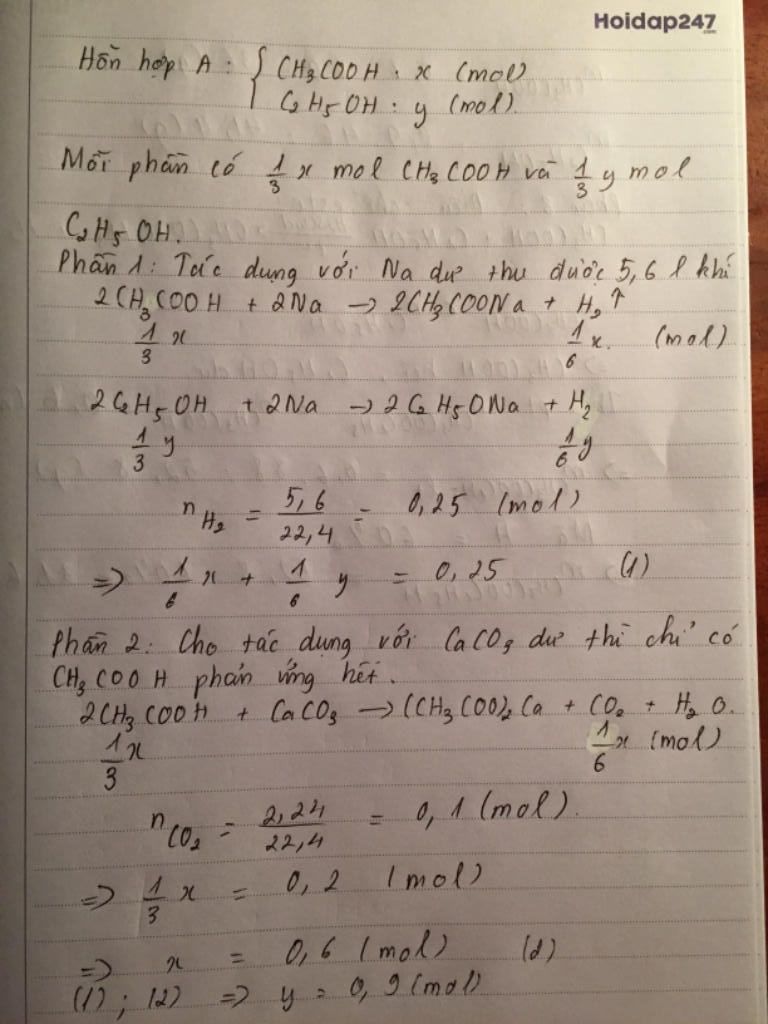 Hoidap247
.com
Hỗn hợp A : { CH3COOH : x (mol)
C2H5OH : y (mol).
Mỗi phần có 1/3 x mol CH3COOH và 1/3 y mol
C2H5OH.
Phần 1: Tác dụng với Na dư thu được 5,6 l khí
2CH3COOH + 2Na → 2CH3COONa + H2↑
1/3 x 1/6 x. (mol)
2C2H5OH + 2Na → 2C2H5ONa + H2
1/3 y 1/6 y
nH2 = 5,6/22,4 = 0,25 (mol)
=> 1/6 x + 1/6 y = 0,25 (1)
Phần 2: Cho tác dụng với CaCO3 dư thì chỉ có
CH3COOH phản ứng hết.
2CH3COOH + CaCO3 → (CH3COO)2Ca + CO2 + H2O.
1/3 x 1/6 x (mol)
nCO2 = 2,24/22,4 = 0,1 (mol).
=> 1/3 x = 0,2 (mol)
=> x = 0,6 (mol) (2)
(1) ; (2) => y = 0,9 (mol)